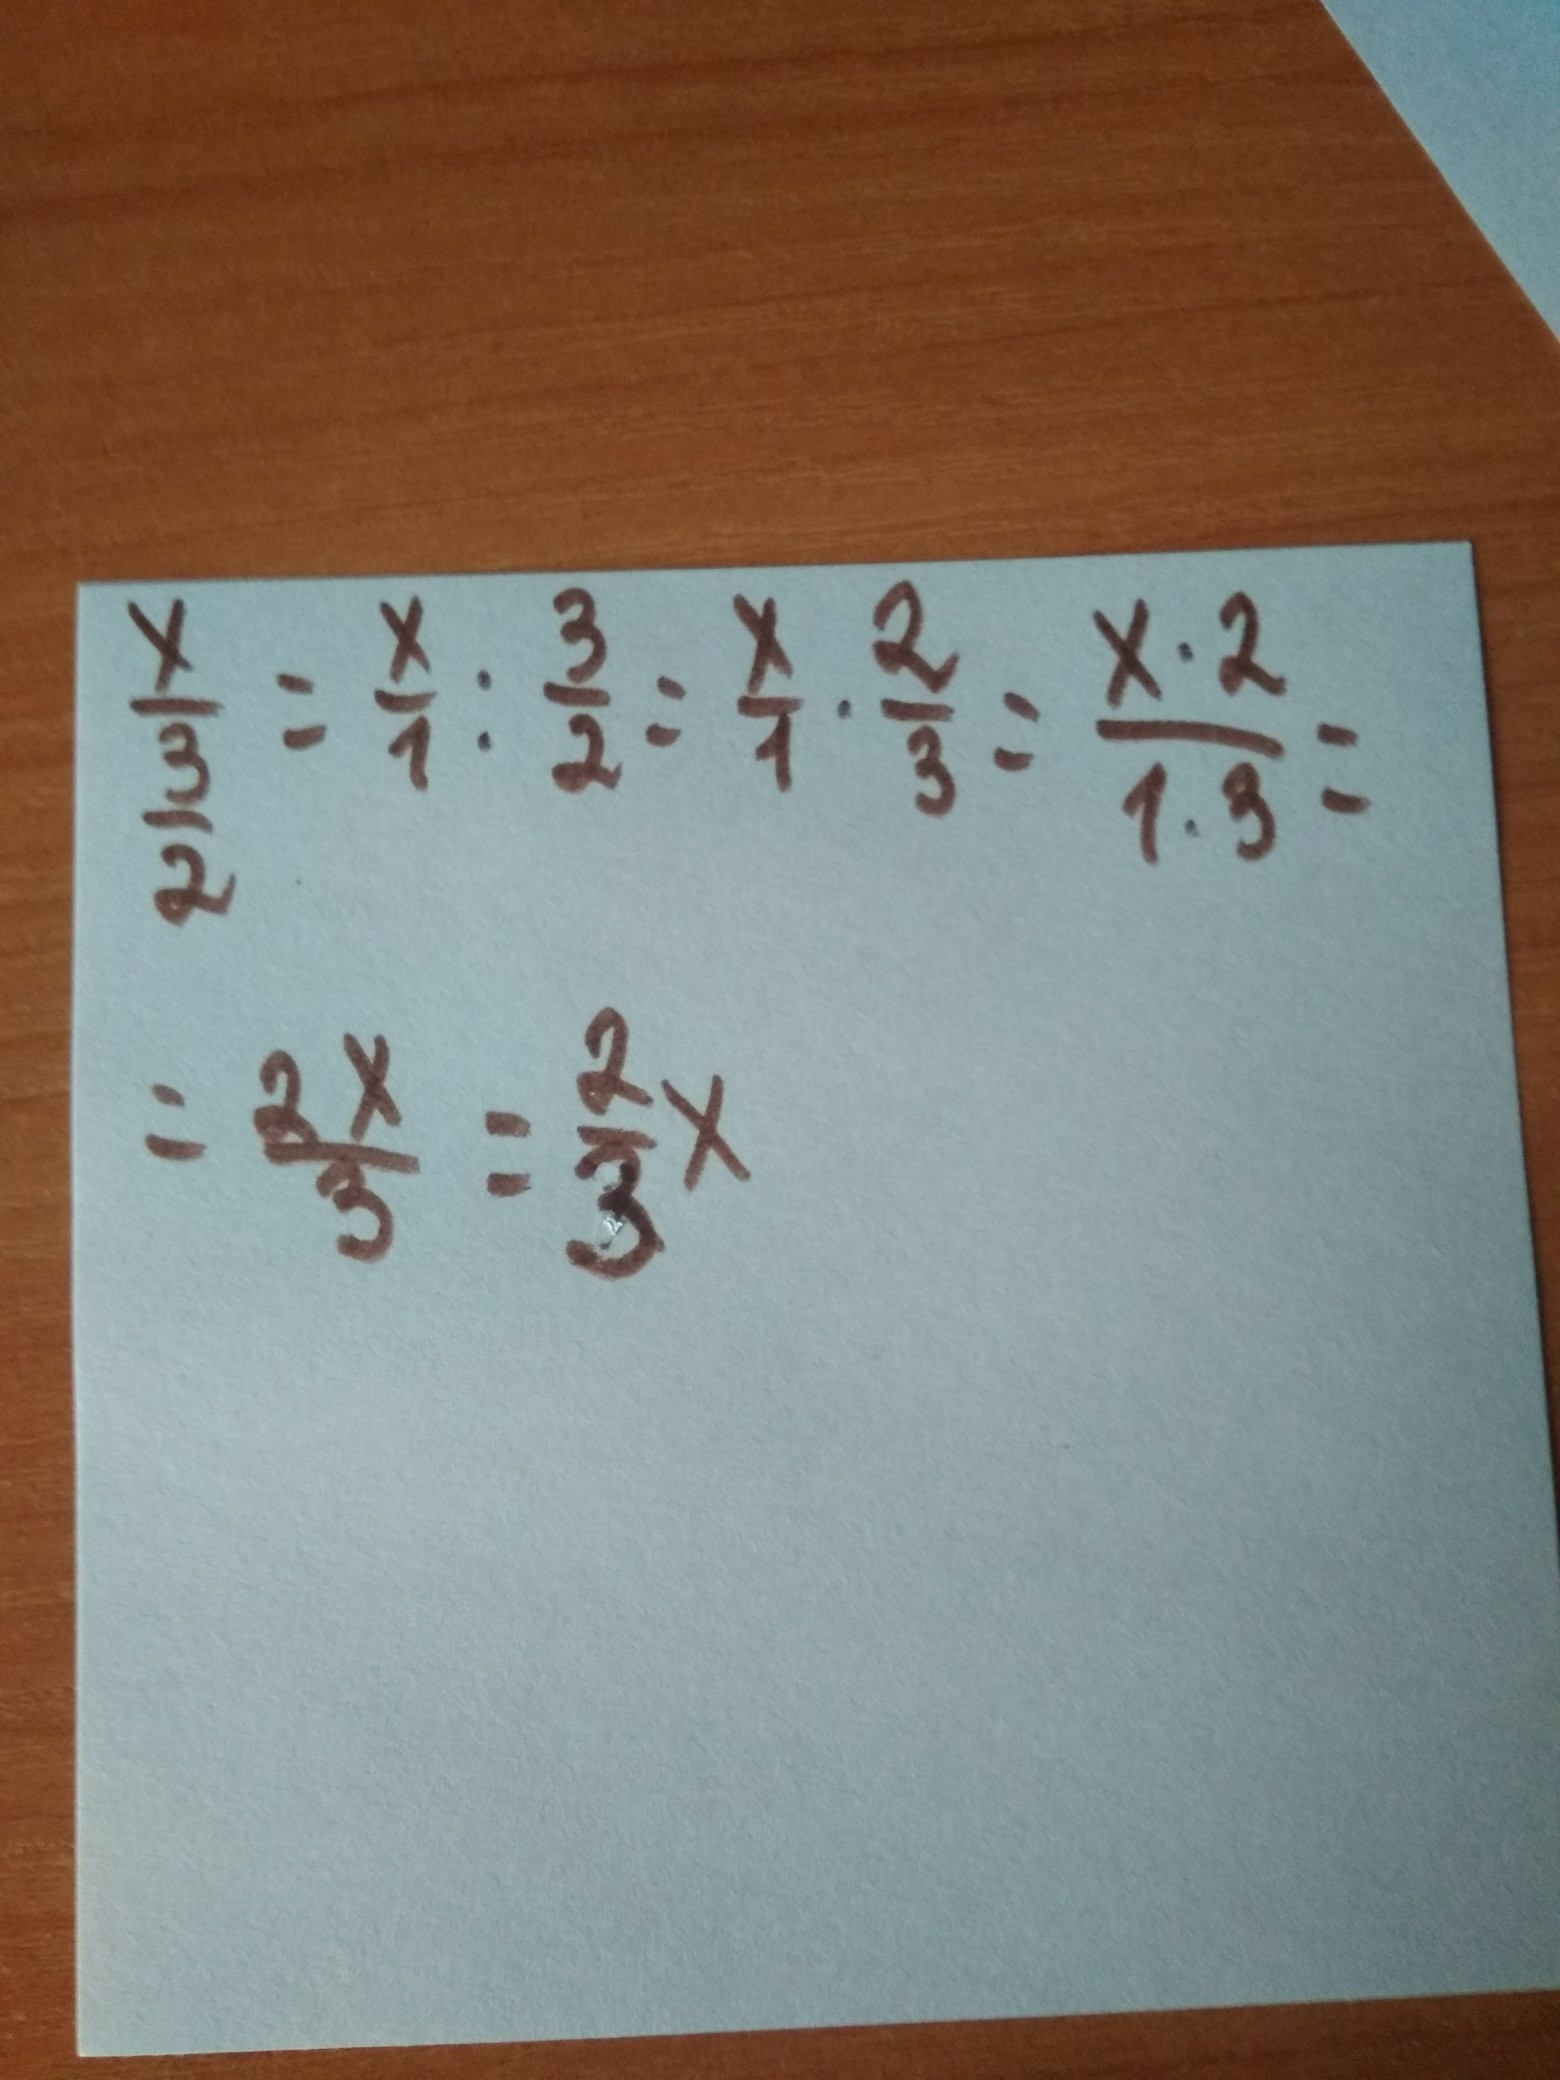 x/(3/2) = x/1 : 3/2 = x/1 · 2/3 = x·2/1·3 =
= 2x/3 = 2/3 x